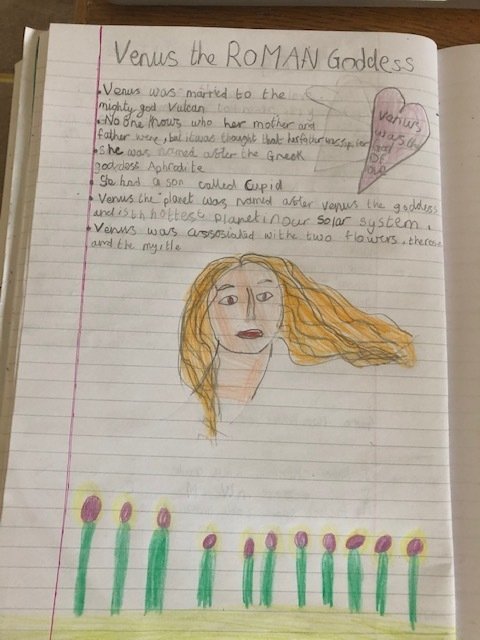 Venus the ROMAN Goddess
• Venus was married to the
mighty god Vulcan
• No one knows who her mother and
father were, but it was thought that his father was jupiter
• She was named after the Greek
goddess Aphrodite
• She had a son called Cupid
• Venus the planet was named after Venus the goddess
and is th hottest planet in our solar system.
• Venus was associated withe two flowers, the rose
and the myrtle
Venus
was the
god
Of
love